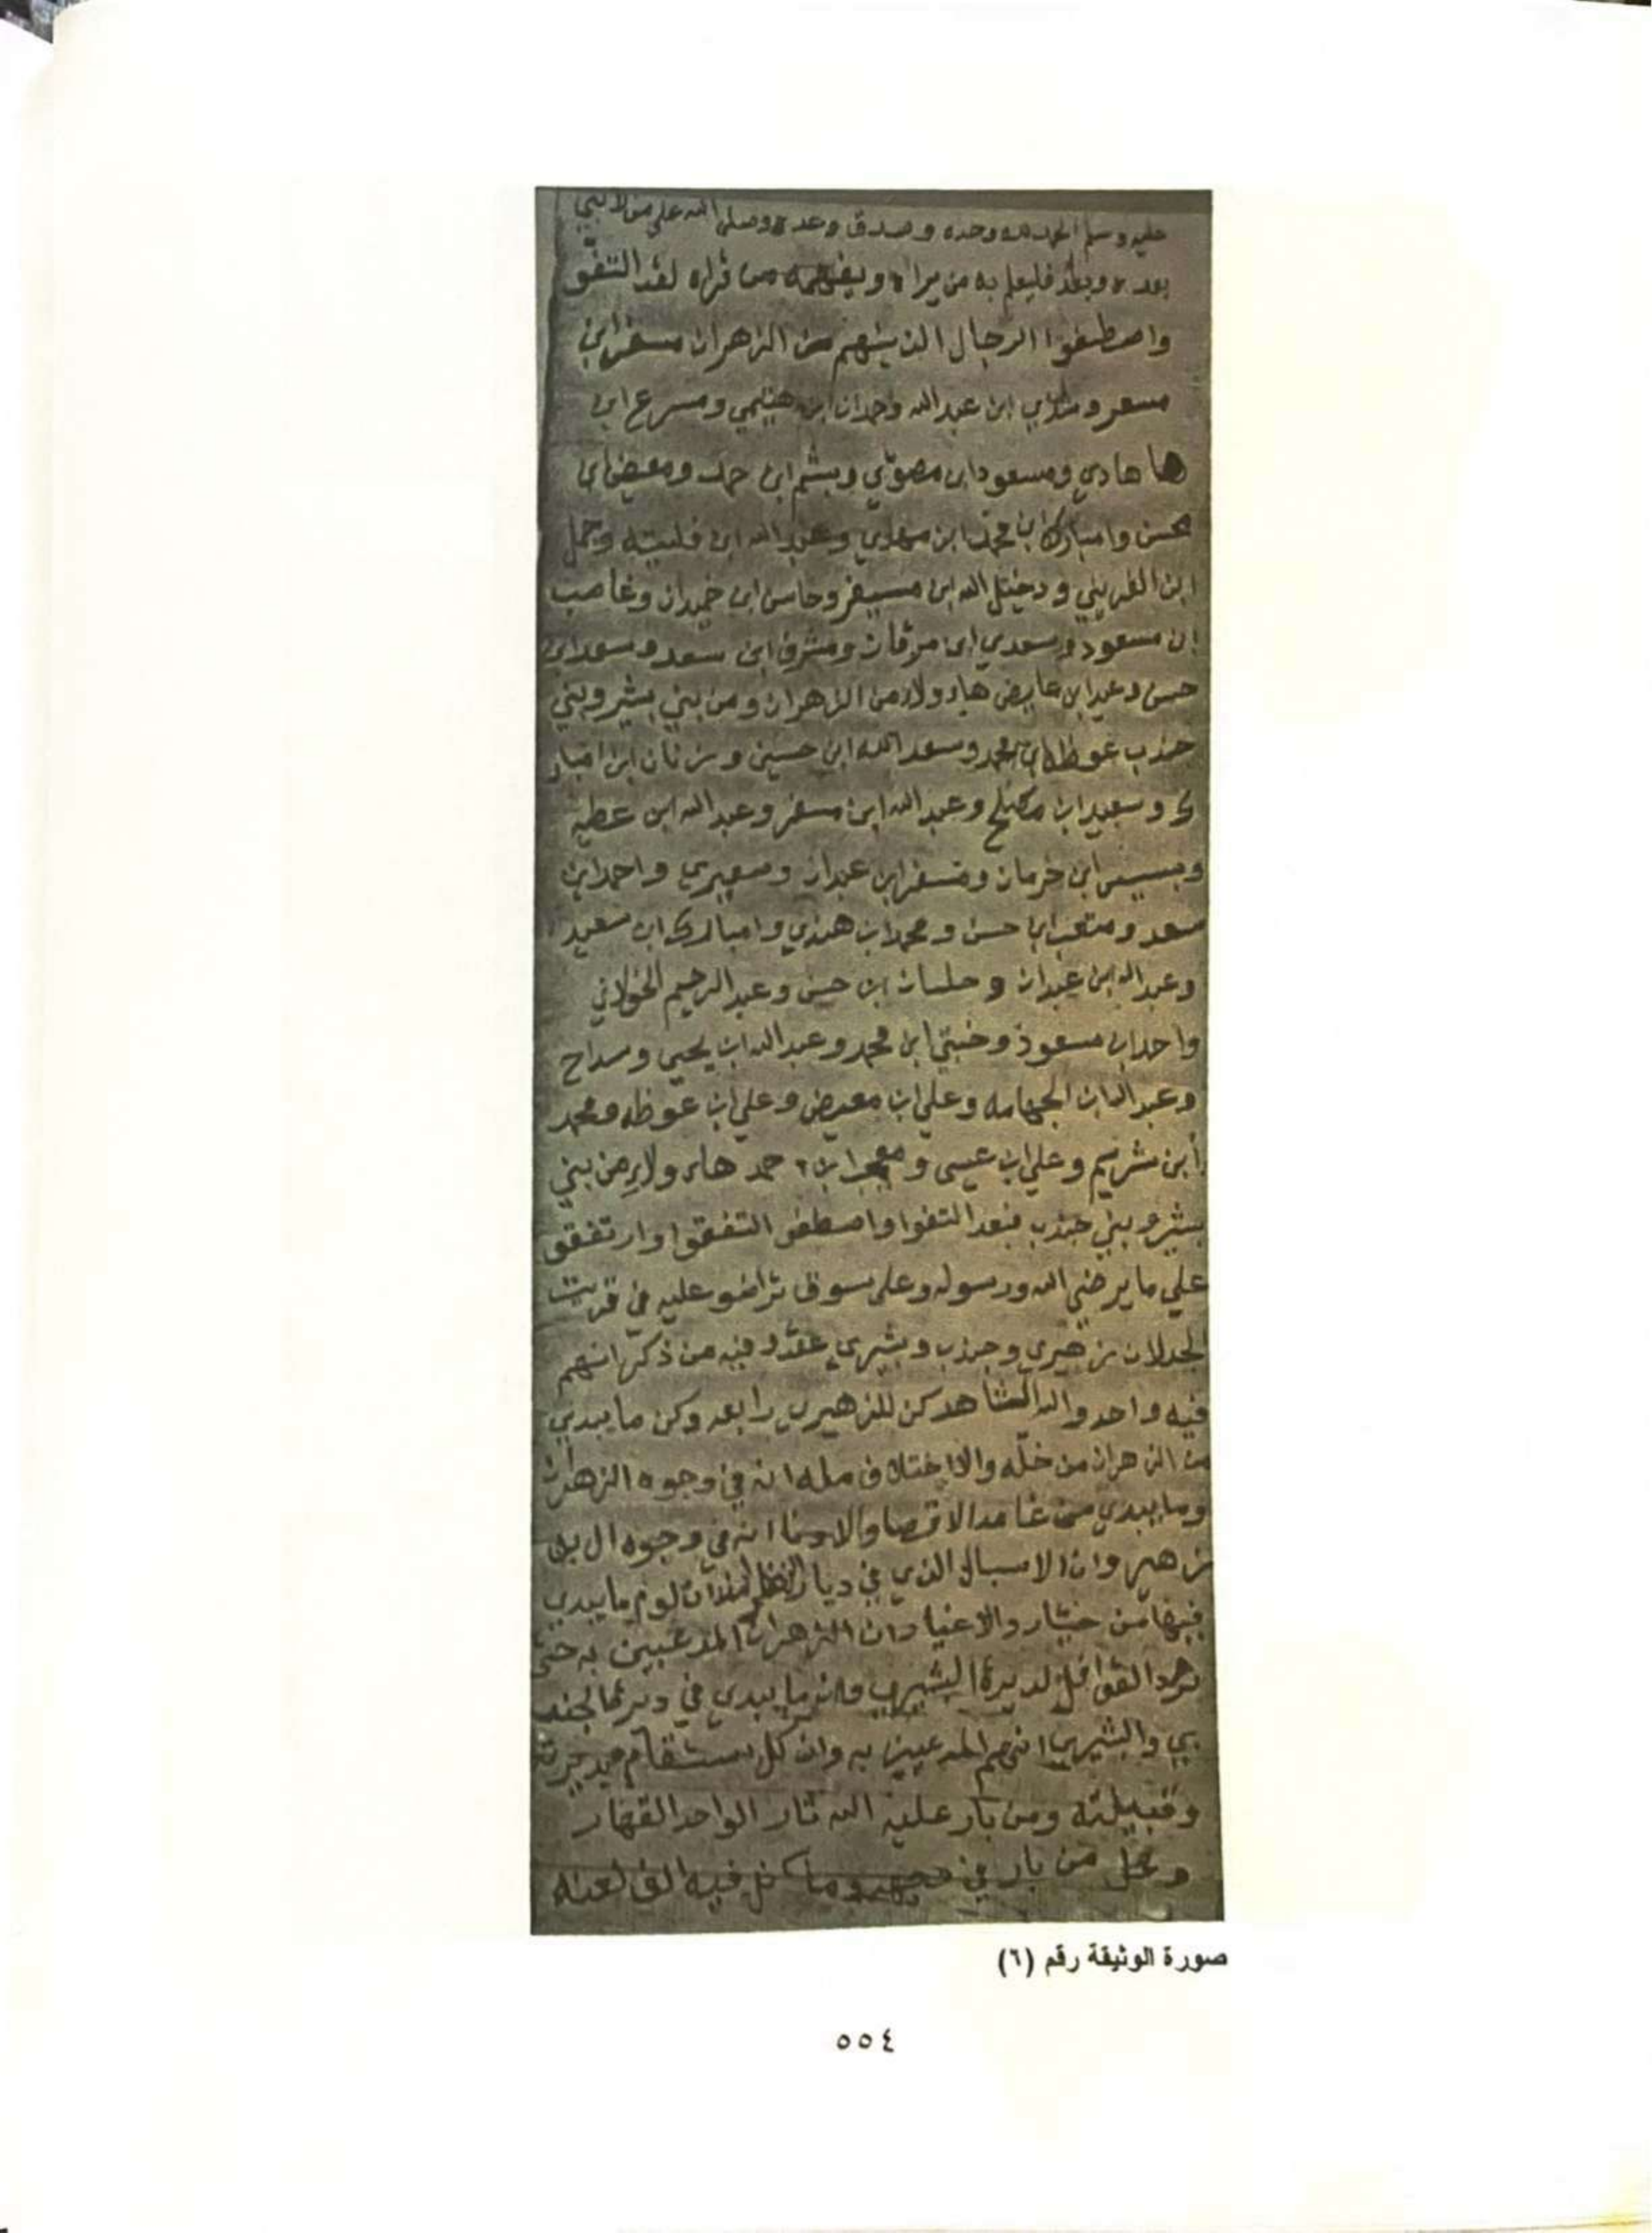 عليه وسلم الحمد لله وحده وصدق وعده وصلى الله على من لا نبي
بعده وبعد فليعلم به من يراه ويفهمه من قراه لقد التفو
واصطفوا الرجال الذينهم من الزهران مسفر ابن
مسعر و ابن عبدالله وحمدان ابن هتيمي ومسرع ابن
ها هادي ومسعود ابن مصوي وبشم ابن حمد ومعيض ابن
محسن وامبارك ابن محمد ابن مهدي وعبدالله ابن فليته وحمل
ابن القريني ودخيل الله ابن مسيفر وحاسن ابن حميدان وغاصب
ابن مسعود وسعدي ابن مرقان ومشرف ابن سعد وسعد ابن
حسن وعيد ابن عايض هاءولاء من الزهران ومن بني بشير وبني
جندب عوظه ابن محمد وسعد الله ابن حسين وزنان ابن امبار
ك وسعيد ابن وعبدالله ابن مسفر وعبدالله ابن عطيه
ابن خرمان ومسفر ابن عبدان وسعيري واحمد ابن
سعد ومتعب ابن حسن ومحمد ابن هندي وامبارك ابن سعيد
وعبدالله ابن عبدان وحلسان ابن حسن وعبد الرحيم الخولاني
واحمد ابن مسعود وخبتي ابن محمد وعبدالله ابن يحيي ومداح
وعبدالله ابن الجهامه وعلي ابن معيض وعلي ابن عوظه ومحمد
ابن شريم وعلي ابن عيسى و حمد هاءولاء من بني
بشير وبني جندب فبعد التفوا واصطفو التفقوا وارتفقو
علي ما يرضي الله ورسوله وعلى سوق تراضو عليه في قريت
الجدلان زهيري وجندب وبشيري عقدو فيه من ذكر انهم
فيه واحد والد الشاهد كن للزهيري رابعه وكن ما يبدي
من الزهران من خله والاختلاف مله انه في وجوه الزهران
وما يبدي من غامد الاقصا والادنا انه في وجوه ال بن
زهير وان الاسبال الذي في ديار لوم ما يبدي
فيها من خيار والاعيار وان الزهران المدعيين به حتى
القوافل لديرة البشيري وانه ما يبدي في ديرة الجند
بي والبشيري انهم المدعيين به وان كل يستقام في ديرته
وقبيلته ومن بار عليه الله ثار الواحد القهار
وعلى من بار في وما كن فيه الف لعنه
صورة الوثيقة رقم (٦)
٥٥٤